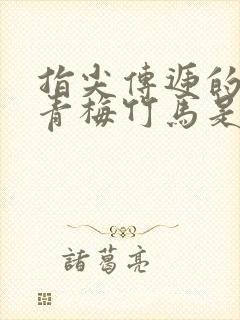 指尖傳遞的
青梅竹馬是
諸葛亮